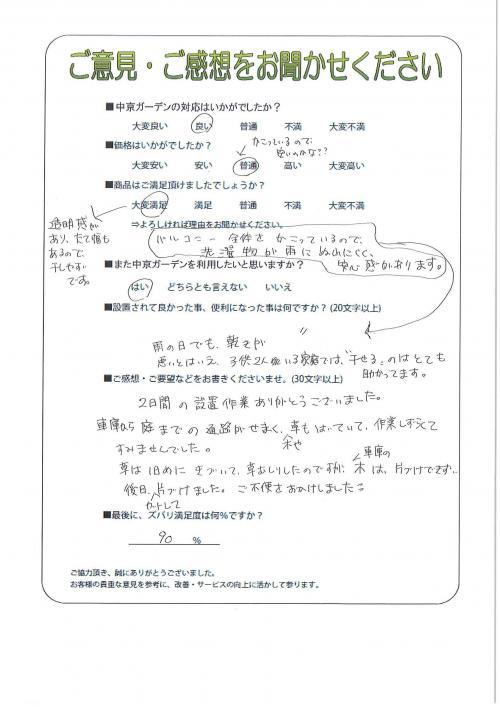 ご意見・ご感想をお聞かせください
■中京ガーデンの対応はいかがでしたか？
大変良い 良い 普通 不満 大変不満
■価格はいかがでしたか？
かこっているので
安いのかな??
大変安い 安い 普通 高い 大変高い
■商品はご満足頂けましたでしょうか？
大変満足 満足 普通 不満 大変不満
⇒よろしければ理由をお聞かせください。
透明感が
あり、たて幅も
あるので、
干しやすい
です。
バルコニー全体をかこっているので、
洗濯物が雨にぬれにくく、
安心感があります。
■また中京ガーデンを利用したいと思いますか？
はい どちらとも言えない いいえ
■設置されて良かった事、便利になった事は何ですか？(20文字以上)
〃
雨の日でも、乾きが
悪いとはいえ、子供2人いる家庭では、"干せる"のはとても
助かってます。
■ご感想・ご要望などをお書きくださいませ。(30文字以上)
2日間の設置作業ありがとうございました。
車庫から庭までの通路がせまく、草もはえていて、作業しずらくて
すみませんでした。
草は1日めにきづいて、草むしりしたのですが、車庫の木は、片づけできず…
後日、片づけました。ご不便をおかけしました
■最後に、ズバリ満足度は何％ですか？
90 ％
ご協力頂き、誠にありがとうございました。
お客様の貴重な意見を参考に、改善・サービスの向上に活かして参ります。